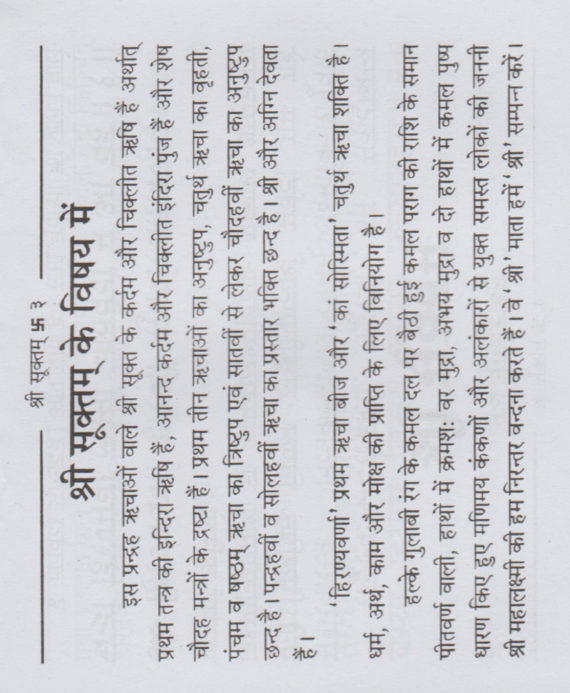 श्री सूक्तम् 卐 ३
श्री सूक्तम् के विषय में
इस प्रन्द्रह ऋचाओं वाले श्री सूक्त के कर्दम और चिक्लीत ऋषि हैं अर्थात्
प्रथम तन्त्र की इन्दिरा ऋषि हैं, आनन्द कर्दम और चिक्लीत इंदिरा पुंज हैं और शेष
चौदह मन्त्रों के द्रष्टा हैं। प्रथम तीन ऋचाओं का अनुष्टुप, चतुर्थ ऋचा का वृहती,
पंचम व षष्ठम् ऋचा का त्रिष्टुप एवं सातवीं से लेकर चौदहवीं ऋचा का अनुष्टुप
छन्द है। पन्द्रहवीं व सोलहवीं ऋचा का प्रस्तार भक्ति छन्द है। श्री और अग्नि देवता
हैं।
'हिरण्यवर्णा' प्रथम ऋचा बीज और 'कां सोस्मिता' चतुर्थ ऋचा शक्ति है।
धर्म, अर्थ, काम और मोक्ष की प्राप्ति के लिए विनियोग है।
हल्के गुलाबी रंग के कमल दल पर बैठी हुई कमल पराग की राशि के समान
पीतवर्ण वाली, हाथों में क्रमशः वर मुद्रा, अभय मुद्रा व दो हाथों में कमल पुष्प
धारण किए हुए मणिमय कंकणों और अलंकारों से युक्त समस्त लोकों की जननी
श्री महालक्ष्मी की हम निरन्तर वन्दना करते हैं। वे 'श्री' माता हमें 'श्री' सम्पन्न करें।